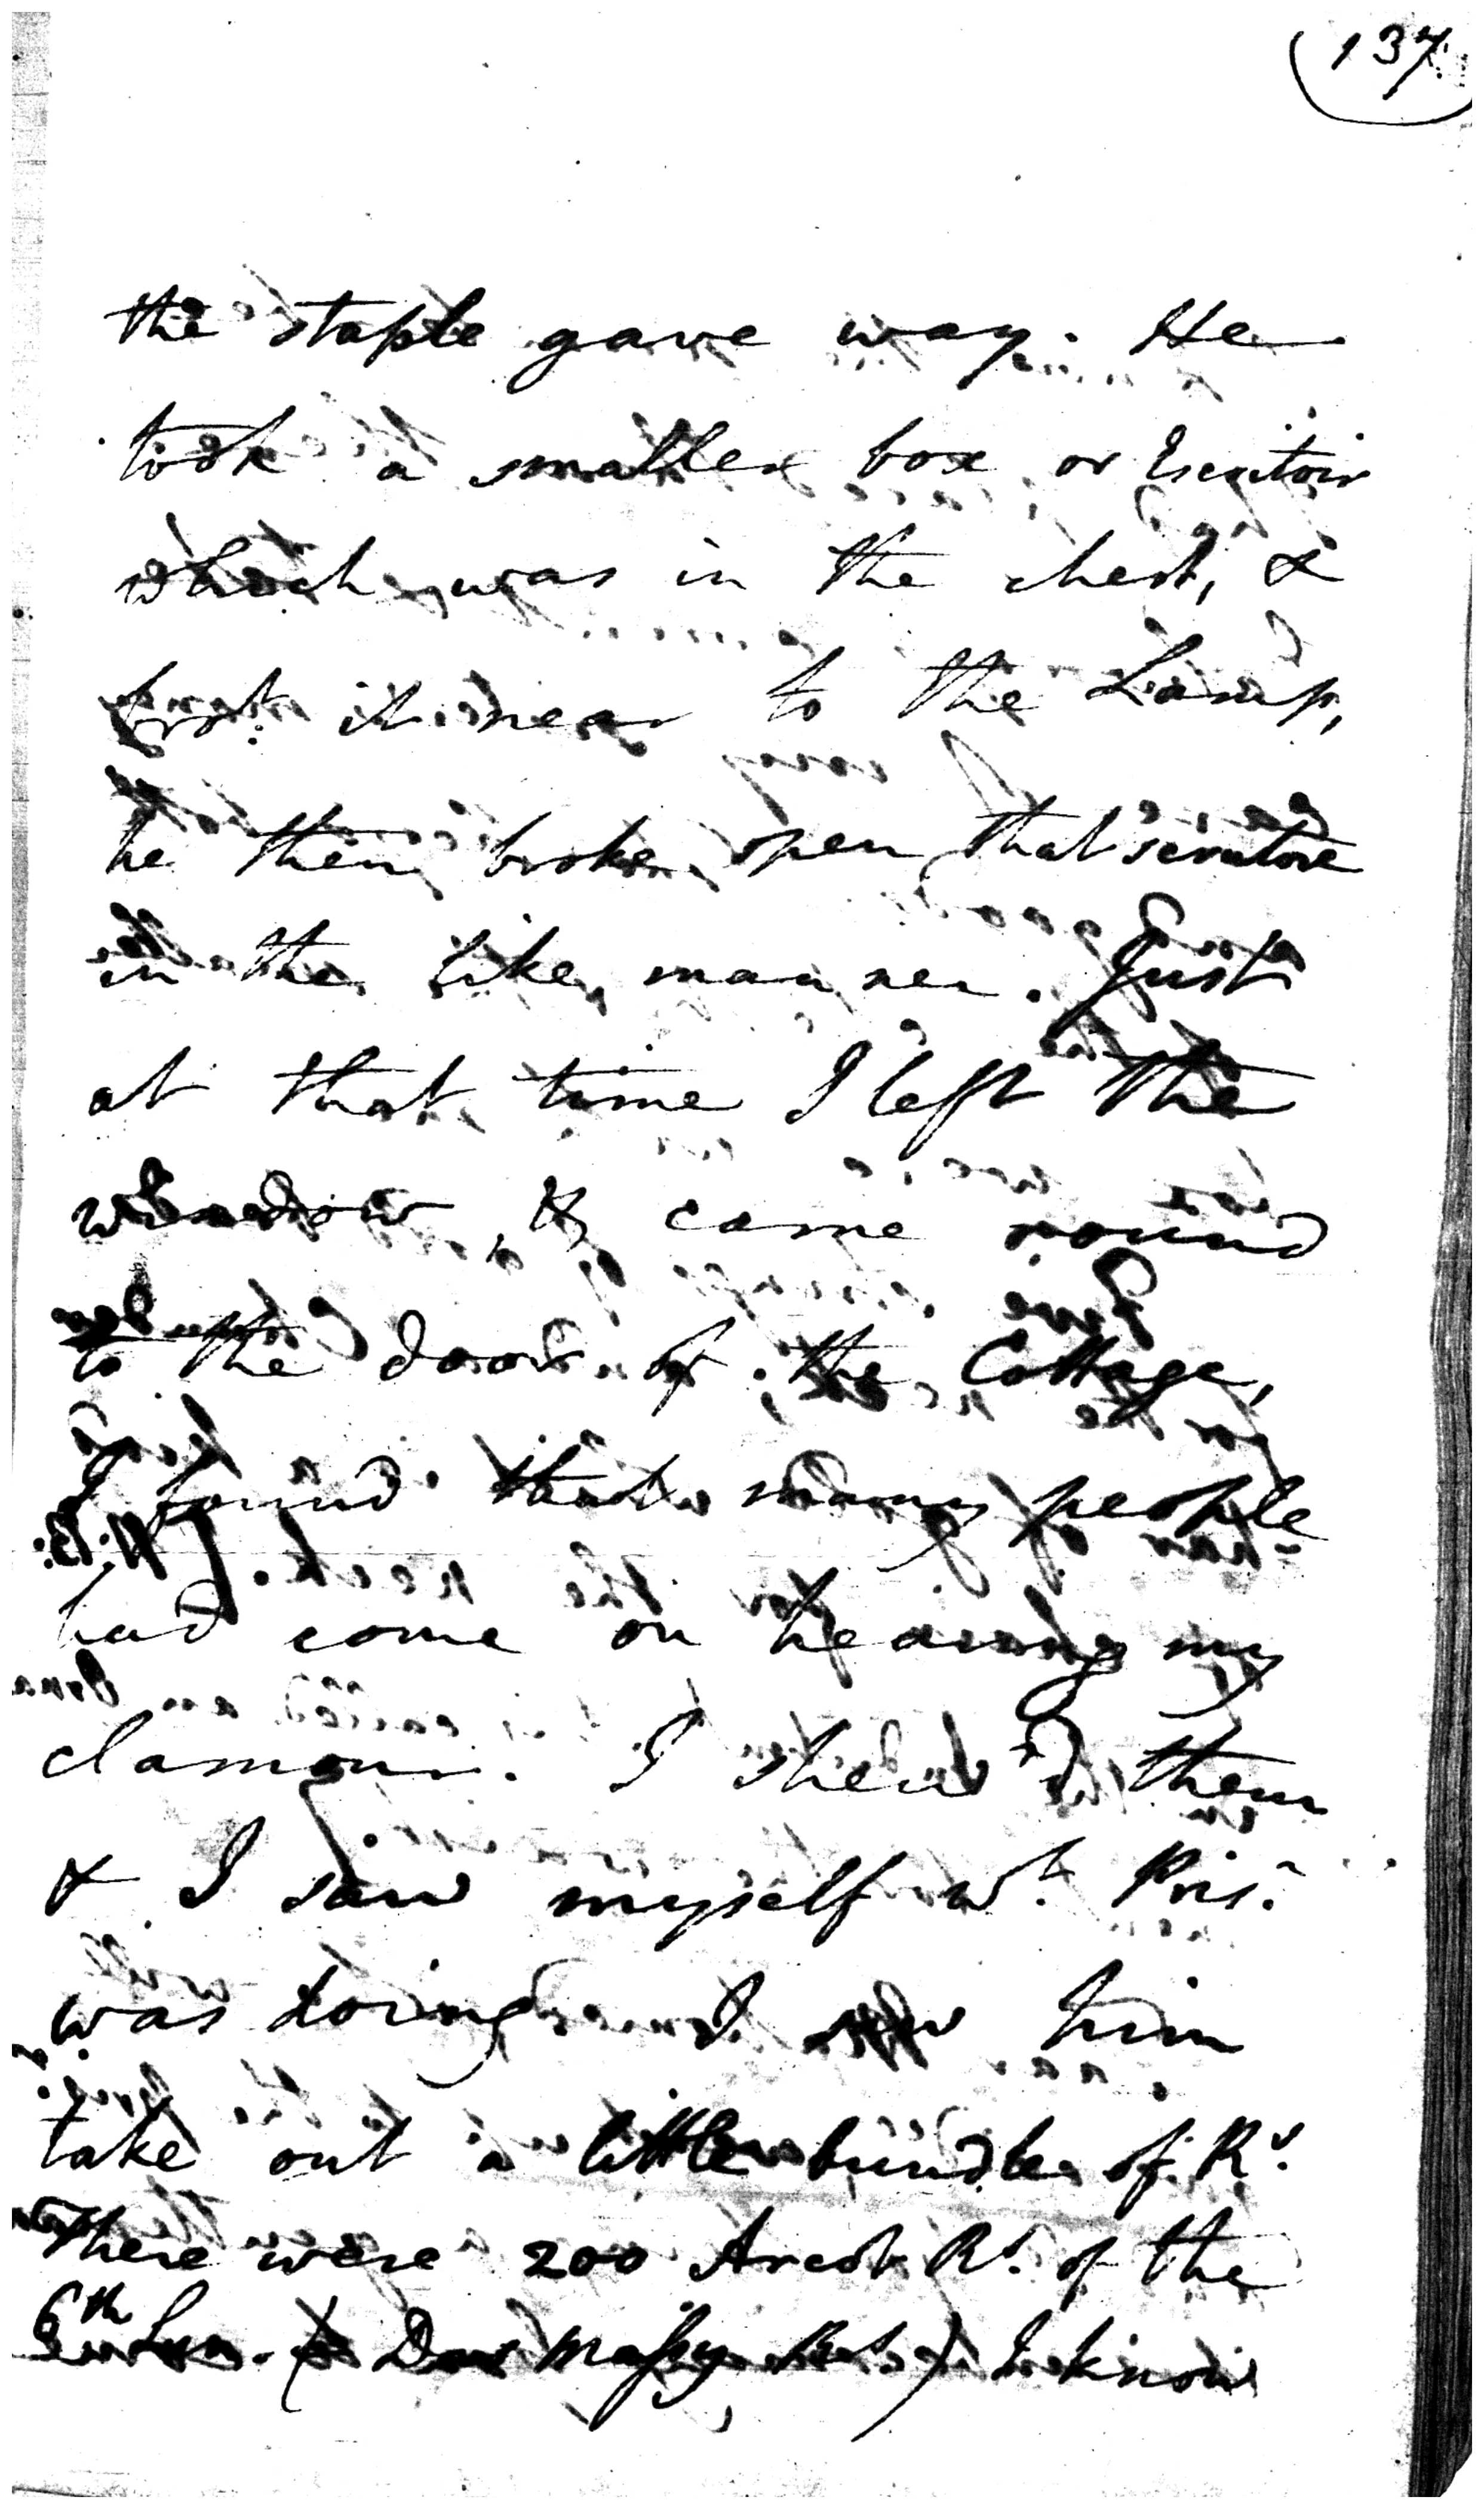 137.
the staple gave way. He
took a smaller box or Escritoir
which was in the chest, &
brot. it near to the Lamp,
he then broke open that scrutore
in the like manner. Just
at that time I left the
window, & came round
to the door of the Cottage,
I found that many people
had come on hearing my
clamour. I shew'd them
& I saw myself wt. Pris.r
was doing. I saw him
take out a little bundle of Rs.
There were 200 Arcot Rs. of the
6th Sun. ( Dos Massy Rs.) I know